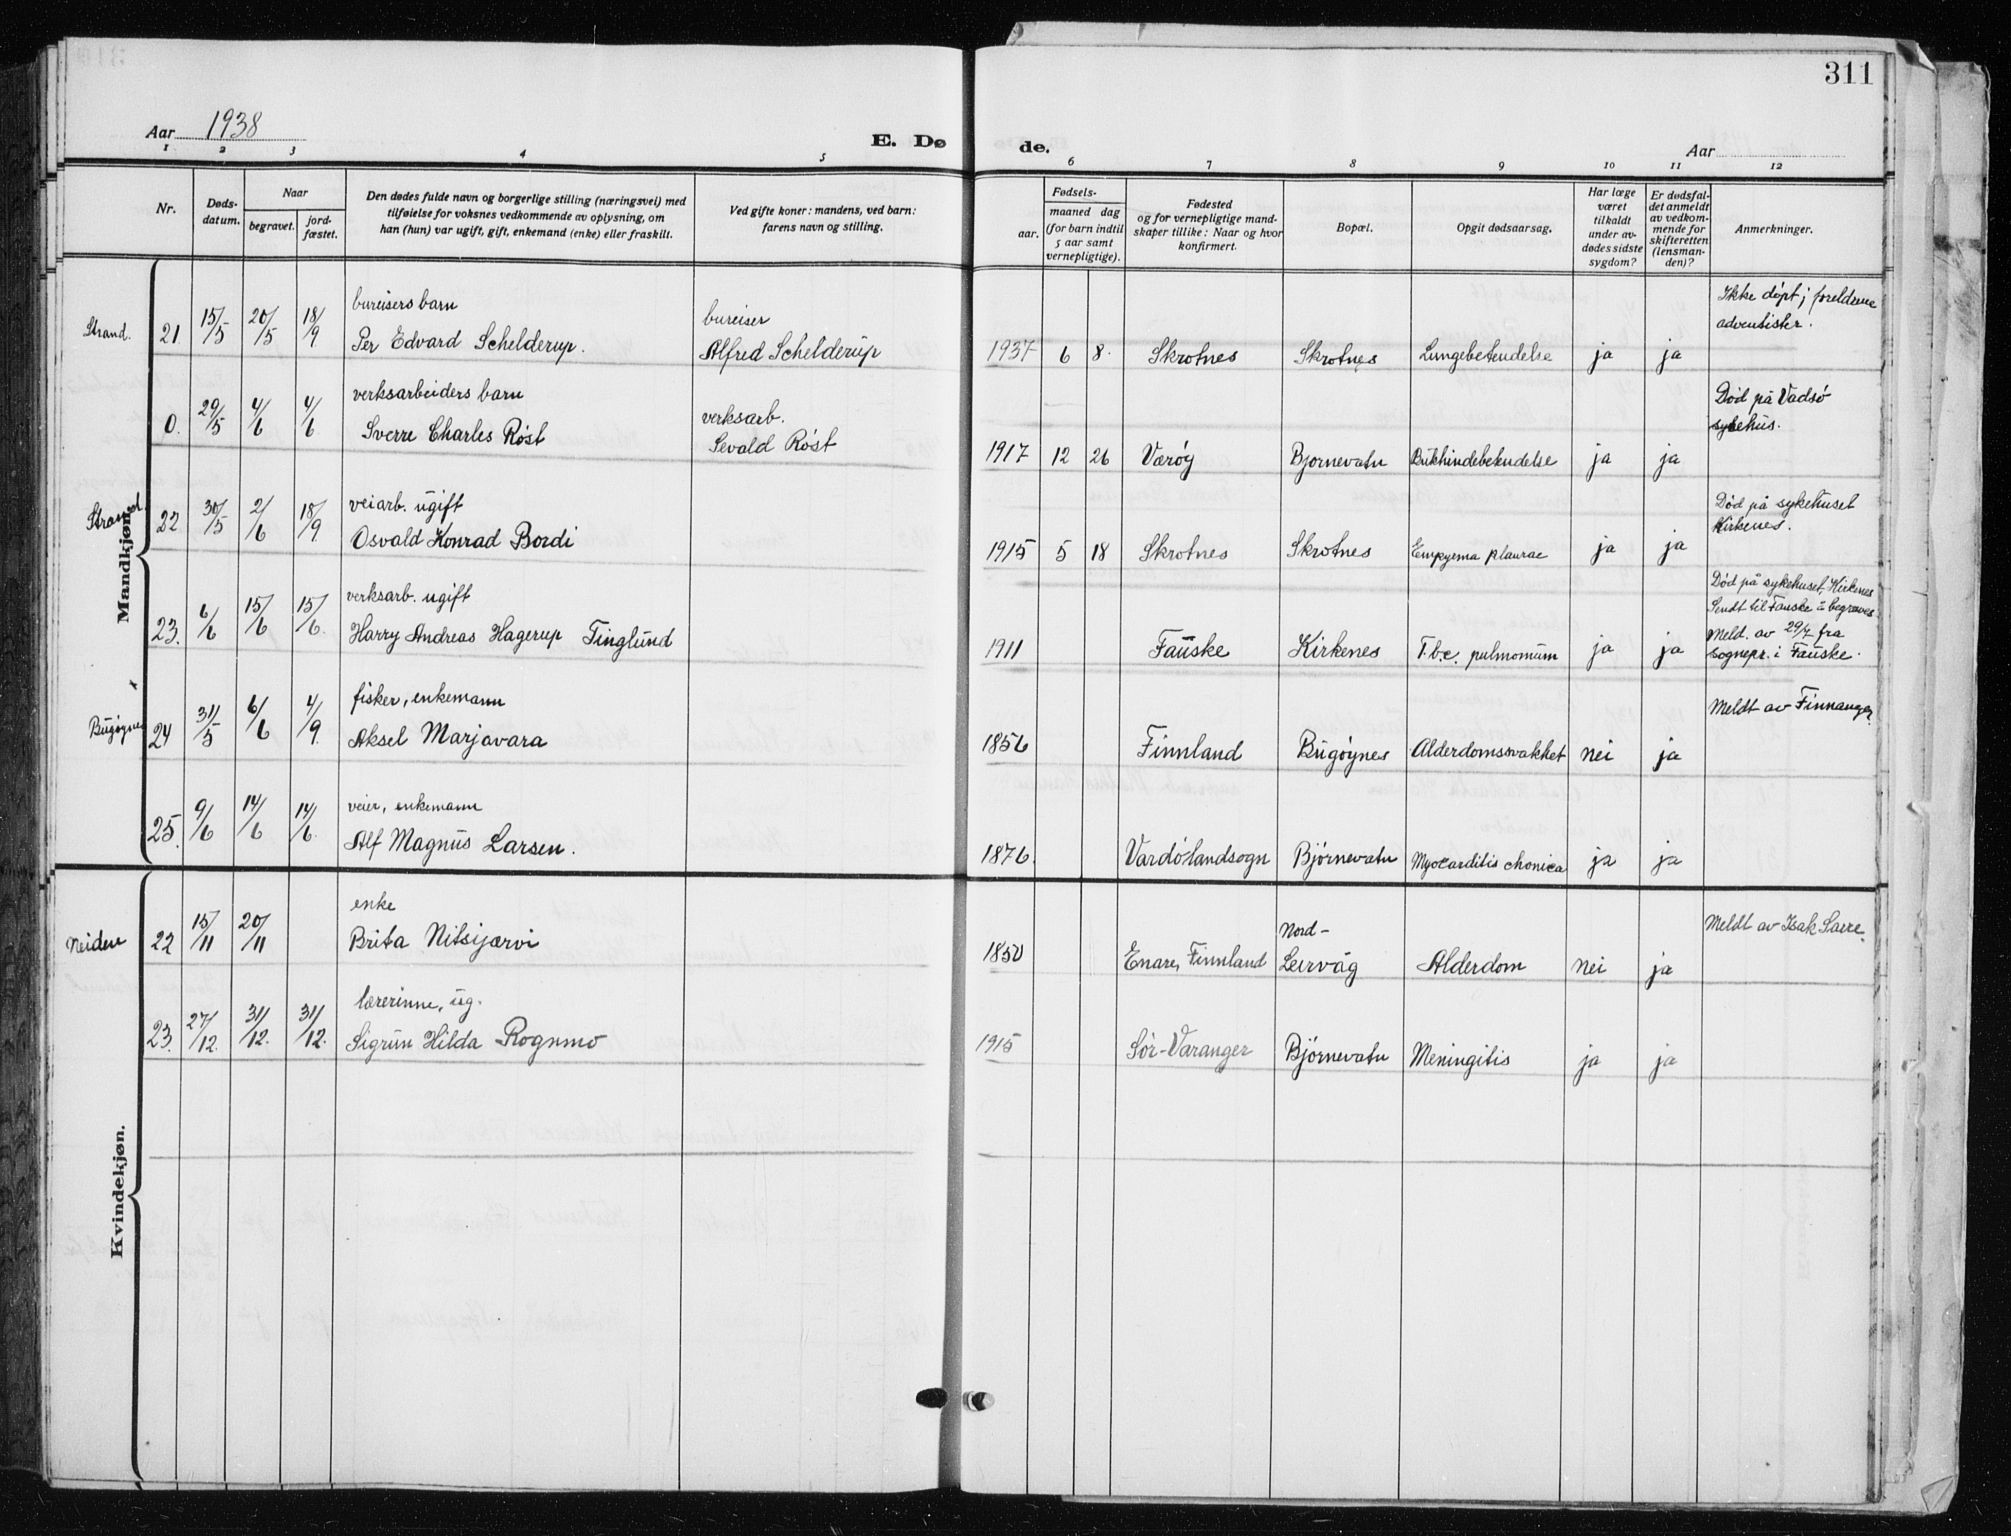 311
Aar 1938
E. Dø de.
Aar
1 2 3 4 5 6 7 8 9 10 11 12
Nr.
Døds-
datum.
Naar
begravet.
jord-
fæstet.
Den dødes fulde navn og borgerlige stilling (næringsvei) med
tilføielse for voksnes vedkommende av oplysning, om
han (hun) var ugift, gift, enkemand (enke) eller fraskilt.
Ved gifte koner: mandens, ved barn:
farens navn og stilling.
Fødsels-
aar.
maaned dag
(for barn indtil
5 aar samt
vernepligtige).
Fødested
og for vernepligtige mand-
skaper tillike: Naar og hvor
konfirmert.
Bopæl.
Opgit dødsaarsag.
Har læge
været
tilkaldt
under av-
dødes sidste
sygdom?
Er dødsfal-
det anmeldt
av vedkom-
mende for
skifteretten
(lensman-
den)?
Anmerkninger.
Mandkjøn.
Strand. 21 15/5 20/5 18/9 bureisers barn
Per Edvard Schelderup.
bureiser
Alfred Schelderup
1937 6 8. Skrotnes Skrotnes Lungebetendelse ja ja
Ikke døpt; foreldrene
adventister.
0. 29/5 4/6 4/6 verksarbeiders barn
Sverre Charles Røst
verksarb.
Sevald Røst
1917 12 26 Værøy Bjørnevatn Bukhindebetendelse ja ja
Død på Vadsø
sykehus.
Strand. 22 30/5 2/6 18/9 veiarb. ugift
Osvald Konrad Bordi
1915 5 18 Skrotnes Skrotnes Empyema plaurae ja ja
Død på sykehuset
Kirkenes.
23. 6/6 15/6 15/6. verksarb. ugift
Harry Andreas Hagerup Tinglund
1911 Fauske Kirkenes T.b.c. pulmonum ja ja
Død på sykehuset, Kirkenes
Sendt til Fauske å begraves.
Meld. av 29/7 fra
sognepr. i Fauske.
Bugøynes 24 31/5 6/6 4/9. fisker, enkemann
Aksel Marjavara
1856 Finnland Bugøynes Alderdomssvakhet nei ja
Meldt av Finnanger.
25. 9/6 14/6 14/6. veier, enkemann
Alf Magnus Larsen.
1876. Vardø landsogn Bjørnevatn Myocarditis chonica ja ja
Kvindekjøn.
Neiden 22 15/11 20/11 enke
Brita Nitsijærvi
1850 Enare, Finnland Nord-
Leirvåg Alderdom nei ja
Meldt av Isak Saere.
23. 27/12. 31/12. 31/12. lærerinne, ug.
Sigrun Hilda Rognmo
1915 Sør-Varanger Bjørnevatn Meningitis ja ja